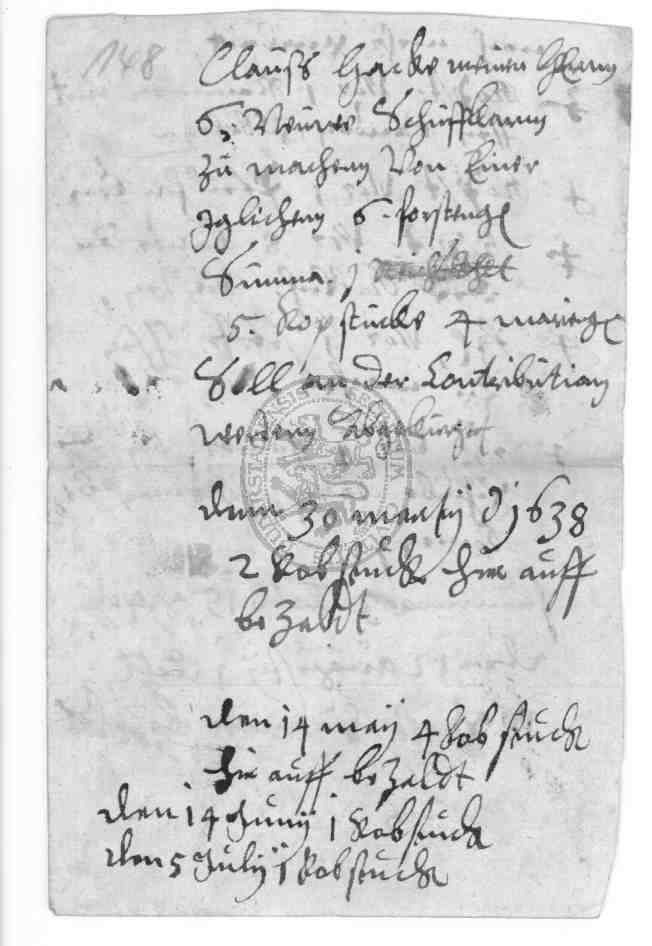 148
Clauss Hacke meinen Herrn
6. Neuwe Schufflarnn
Zu machenn Von Einer
Jglichenn 6. forsteng
Summa. j
5. Kopstucke 4 marieng
Soll an der Contribution
werdenn
denn 30 martij 1638
2 Kobstuck hir auff
bezaldt
den 14 maij 4 Kobstuck
hir auff bezaldt
den 14 Junij 1 Kobstuck
den 5 Julij 1 Kobstuck